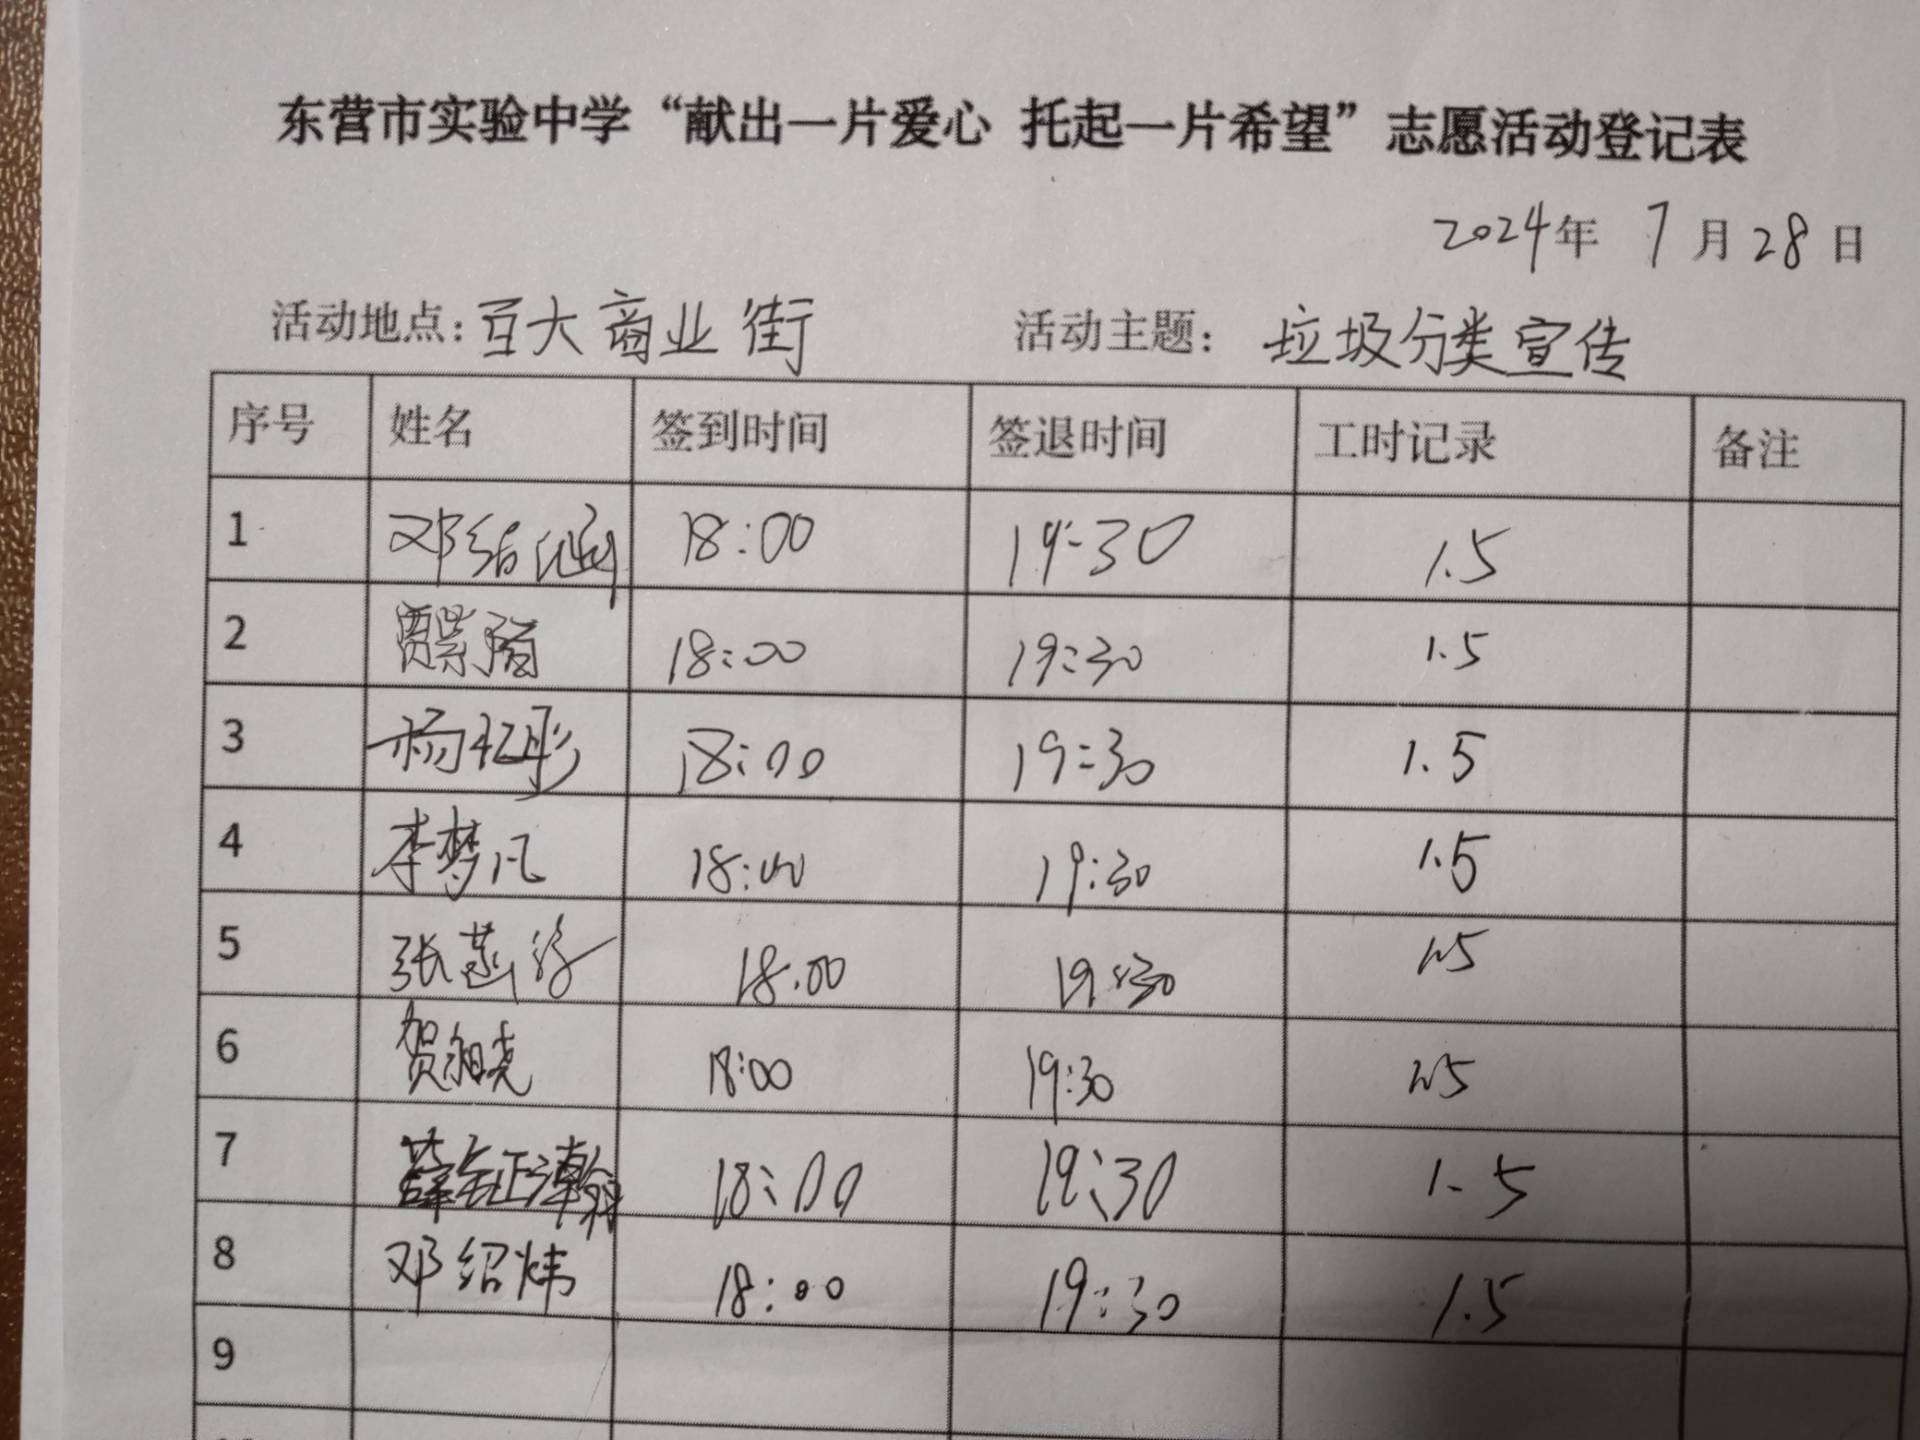 东营市实验中学“献出一片爱心 托起一片希望”志愿活动登记表
2024年 7月28日
活动地点：百大商业街 活动主题：垃圾分类宣传
序号 姓名 签到时间 签退时间 工时记录 备注
1 邓洁涵 18:00 19:30 1.5
2 贾紫瑜 18:00 19:30 1.5
3 杨忆彤 18:00 19:30 1.5
4 李梦凡 18:00 19:30 1.5
5 张 18:00 19:30 1.5
6 贺湘晓 18:00 19:30 1.5
7 薛钲瀚 18:00 19:30 1.5
8 邓绍炜 18:00 19:30 1.5
9